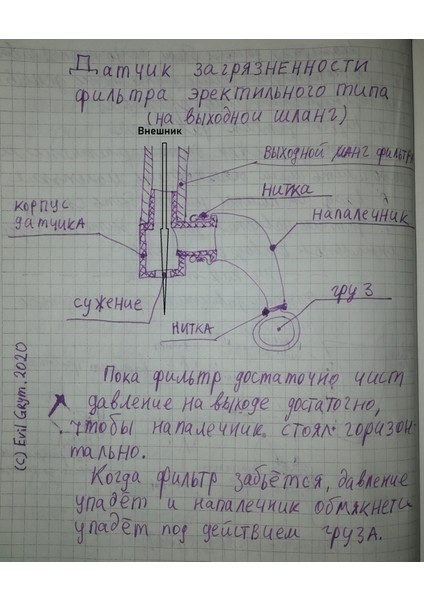 Датчик загрязненности
фильтра эректильного типа
(на выходной шланг)
Внешник
выходной шланг фильтра
нитка
напалечник
корпус
датчика
сужение
нитка
груз
Пока фильтр достаточно чист
давление на выходе достаточно,
чтобы напалечник стоял горизон-
тально.
Когда фильтр забьётся, давление
упадёт и напалечник обмякнет и
упадёт под действием груза.
(c) Evil Grym. 2020